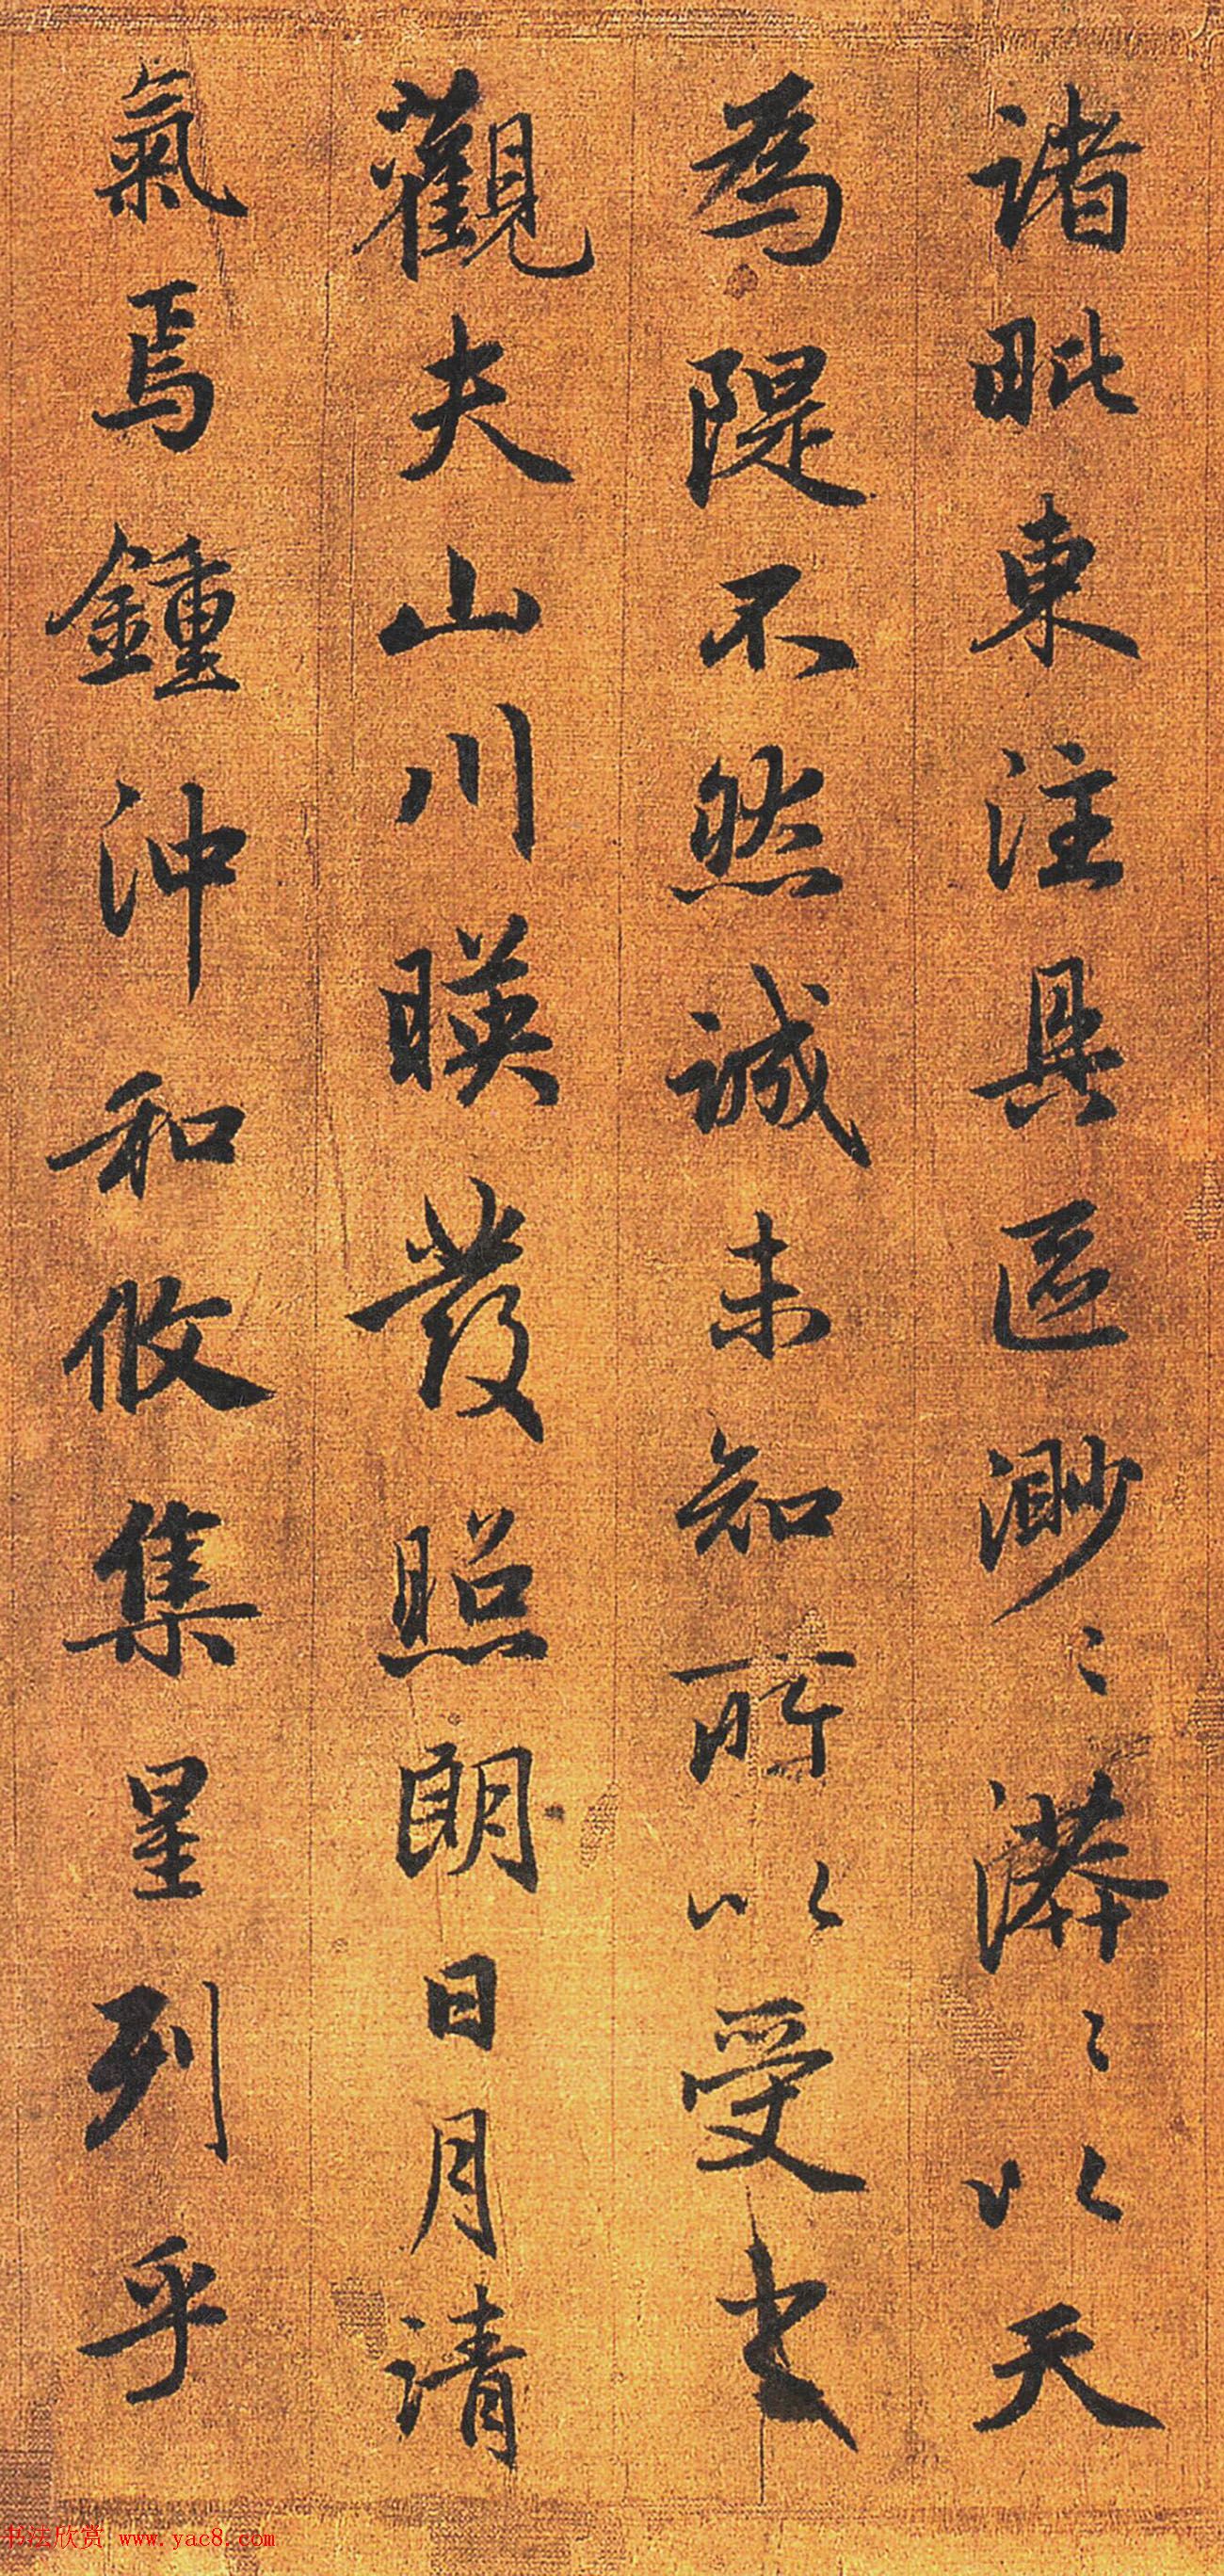 諸毗東注具區渺〻漭〻以天
為隄不然誠未知所以受之
觀夫山川暎發照朗日月清
氣焉鍾沖和攸集星列乎
书法欣赏 www.yac8.com